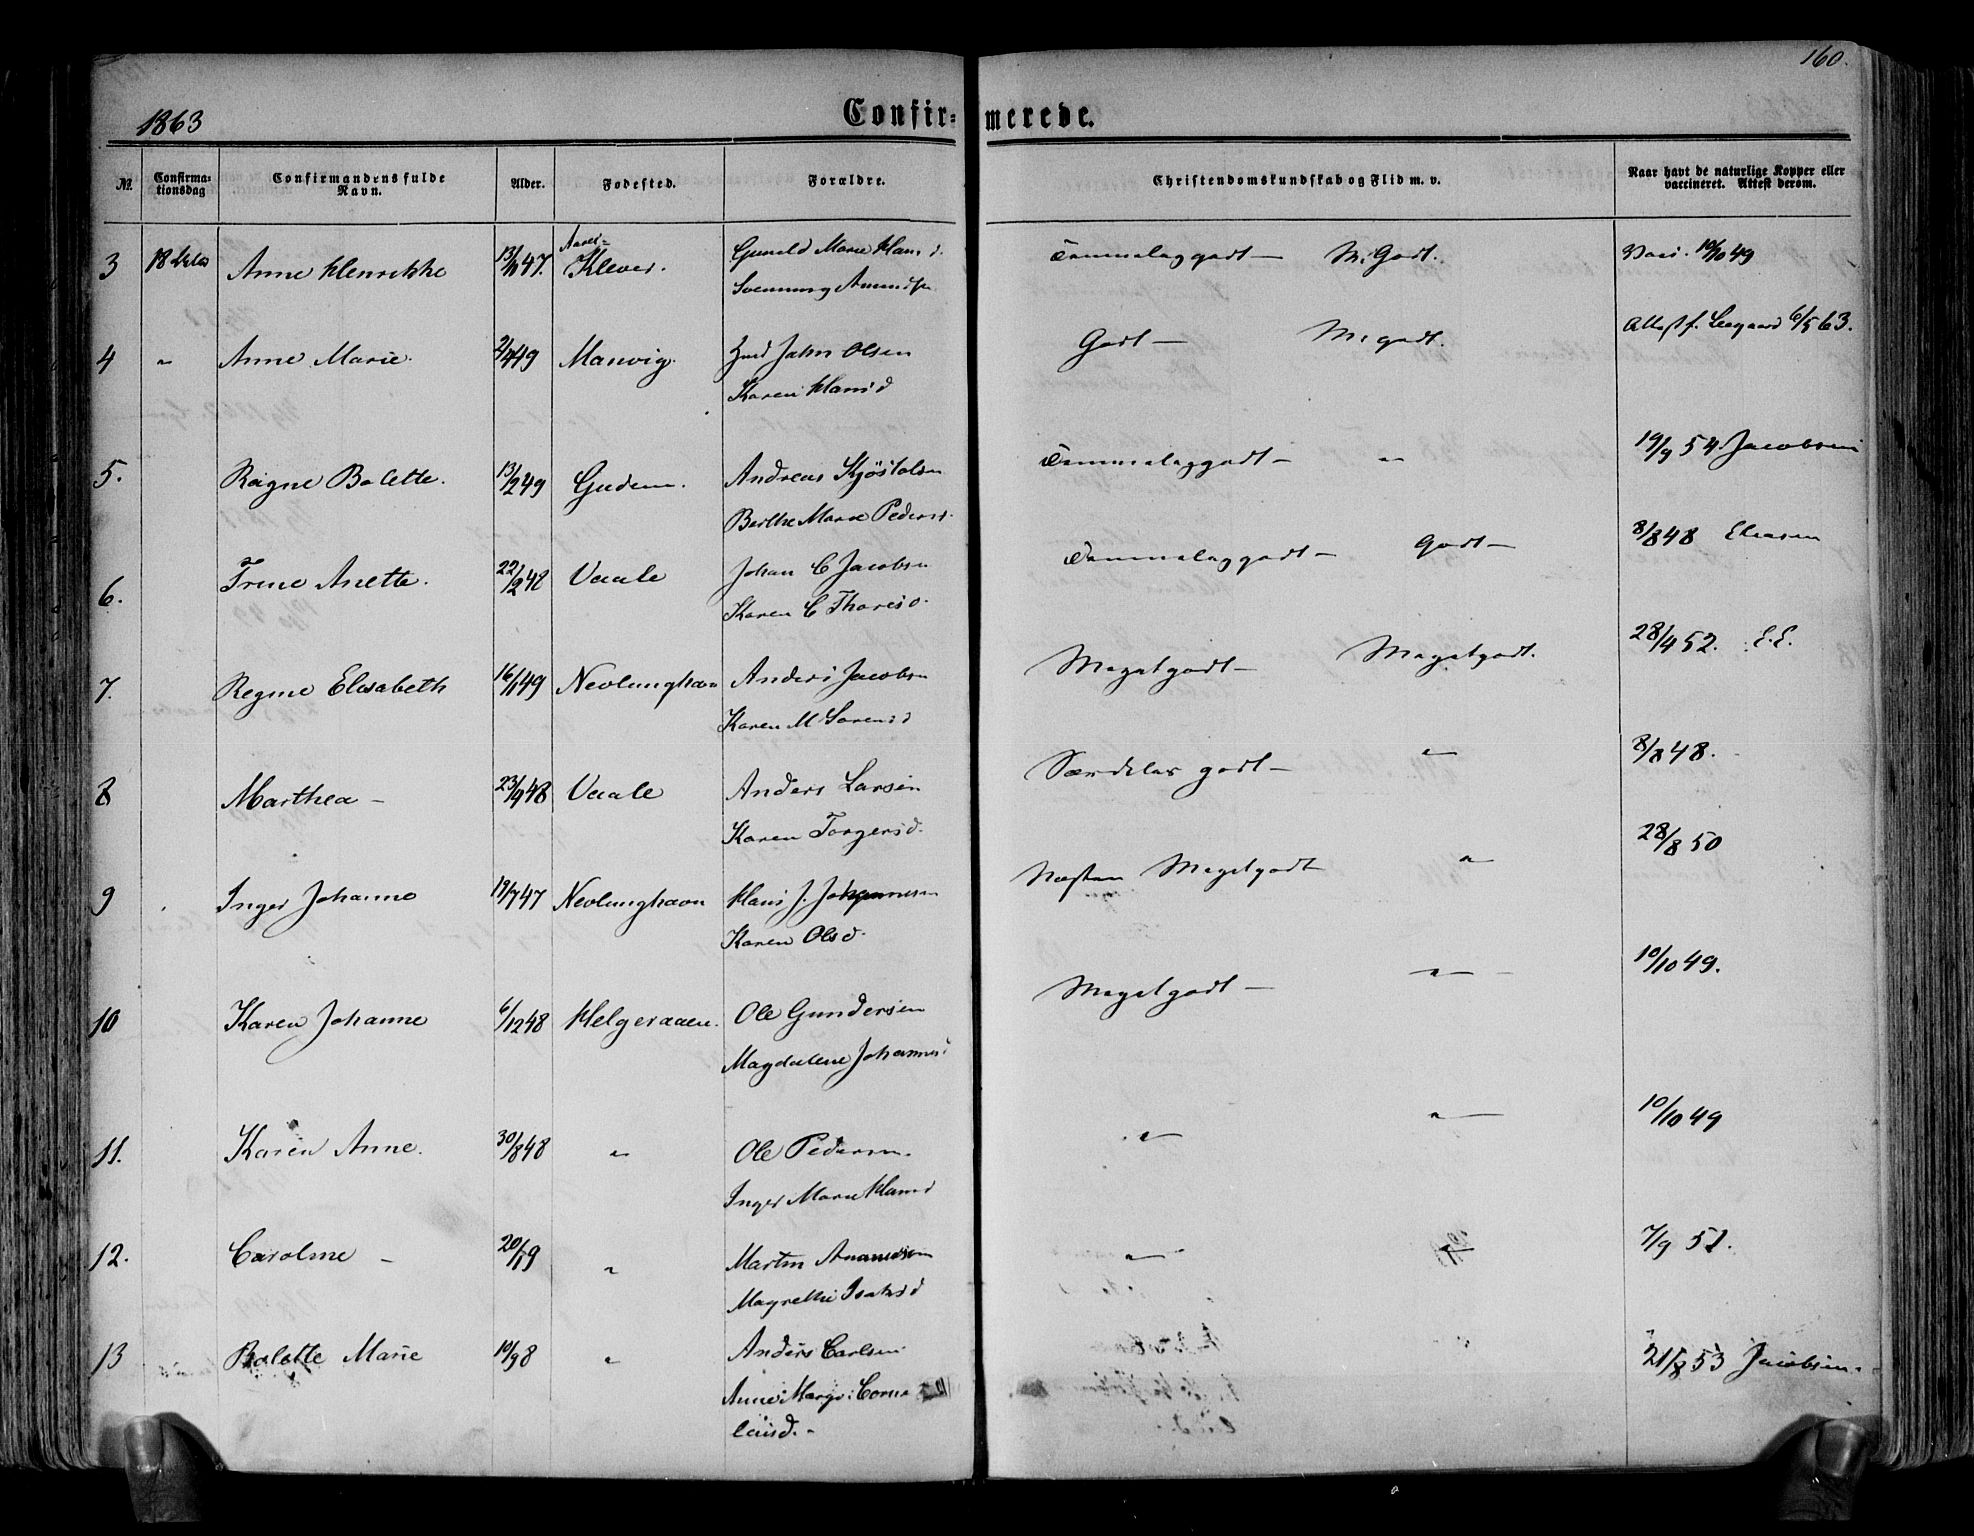 160.
1863 Confirmerede.
No. Confirmationsdag Confirmandens fulde Navn. Alder. Fødested. Forældre. Christendomskundskab og Flid m. v. Naar havt de naturlige Kopper eller vaccineret. Attest derom.
3 18 Anne Henrikke 47. Klever. Gunild Marie Hansd. Temmeliggodt — M. Godt. Vacc. 10/10 49
Svenning Amundsen
4 " Anne Marie. 49 Manvig. John Olsen Godt — M. godt. Attest f. 6/5 63.
Karen Hansd
5. Ragne Bolette. 13/2 49 Gudem. Andreas Kjøstolsen Temmeliggodt — " 19/9 54. Jacobsen
Berthe Marie Pedersd.
6. Trine Anette. 22/2 48 Vaale Johan C Jacobsen Temmeliggodt — Godt — 8/8 48 Eliasen
Karen C Thoresd.
7. Regine Elisabeth 16/1 49 Nevlunghavn Anders Jacobsen Megetgodt — Megetgodt. 28/4 52. E.E.
Karen M Sørensd
8 Marthea — 23/9 48 Vaale Anders Larsen Særdeles godt — " 8/8 48.
Karen Torgersd.
9 Inger Johanne 19/7 47 Nevlunghavn Hans J. Johannesen Næsten Megetgodt " 28/8 50
Karen Olsd.
10 Karen Johanne 6/12 48 Helgeraaen. Ole Gundersen Megetgodt — " 10/10 49.
Magdalene Johannesd
11. Karen Anne. 30/8 48 " Ole Pedersen. " " 10/10 49
Inger Marie Hansd
12. Caroline — 20/1 9 " Martin Amundsen " " 7/9 51.
Magrethe Isaksd
13 Bolette Marie 10/9 8 " Anders Carlsen " 21/8 53 Jacobsen.
Anne Margr: Corne
liusd. —